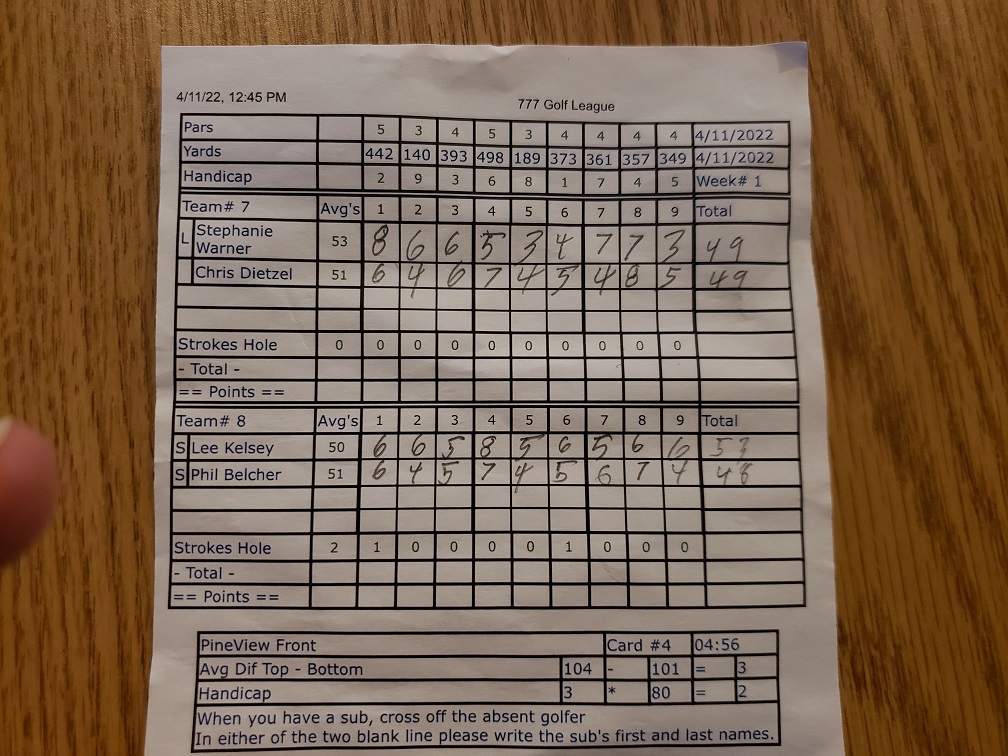 4/11/22, 12:45 PM 777 Golf League
Pars 5 3 4 5 3 4 4 4 4 4/11/2022
Yards 442 140 393 498 189 373 361 357 349 4/11/2022
Handicap 2 9 3 6 8 1 7 4 5 Week# 1
Team# 7 Avg's 1 2 3 4 5 6 7 8 9 Total
L Stephanie Warner 53 8 6 6 5 3 4 7 7 3 49
Chris Dietzel 51 6 4 6 7 4 5 4 8 5 49
Strokes Hole 0 0 0 0 0 0 0 0 0 0
- Total -
== Points ==
Team# 8 Avg's 1 2 3 4 5 6 7 8 9 Total
S Lee Kelsey 50 6 6 5 8 5 6 5 6 6 53
S Phil Belcher 51 6 4 5 7 4 5 6 7 4 48
Strokes Hole 2 1 0 0 0 0 1 0 0 0
- Total -
== Points ==
PineView Front Card #4 04:56
Avg Dif Top - Bottom 104 - 101 = 3
Handicap 3 * 80 = 2
When you have a sub, cross off the absent golfer
In either of the two blank line please write the sub's first and last names.